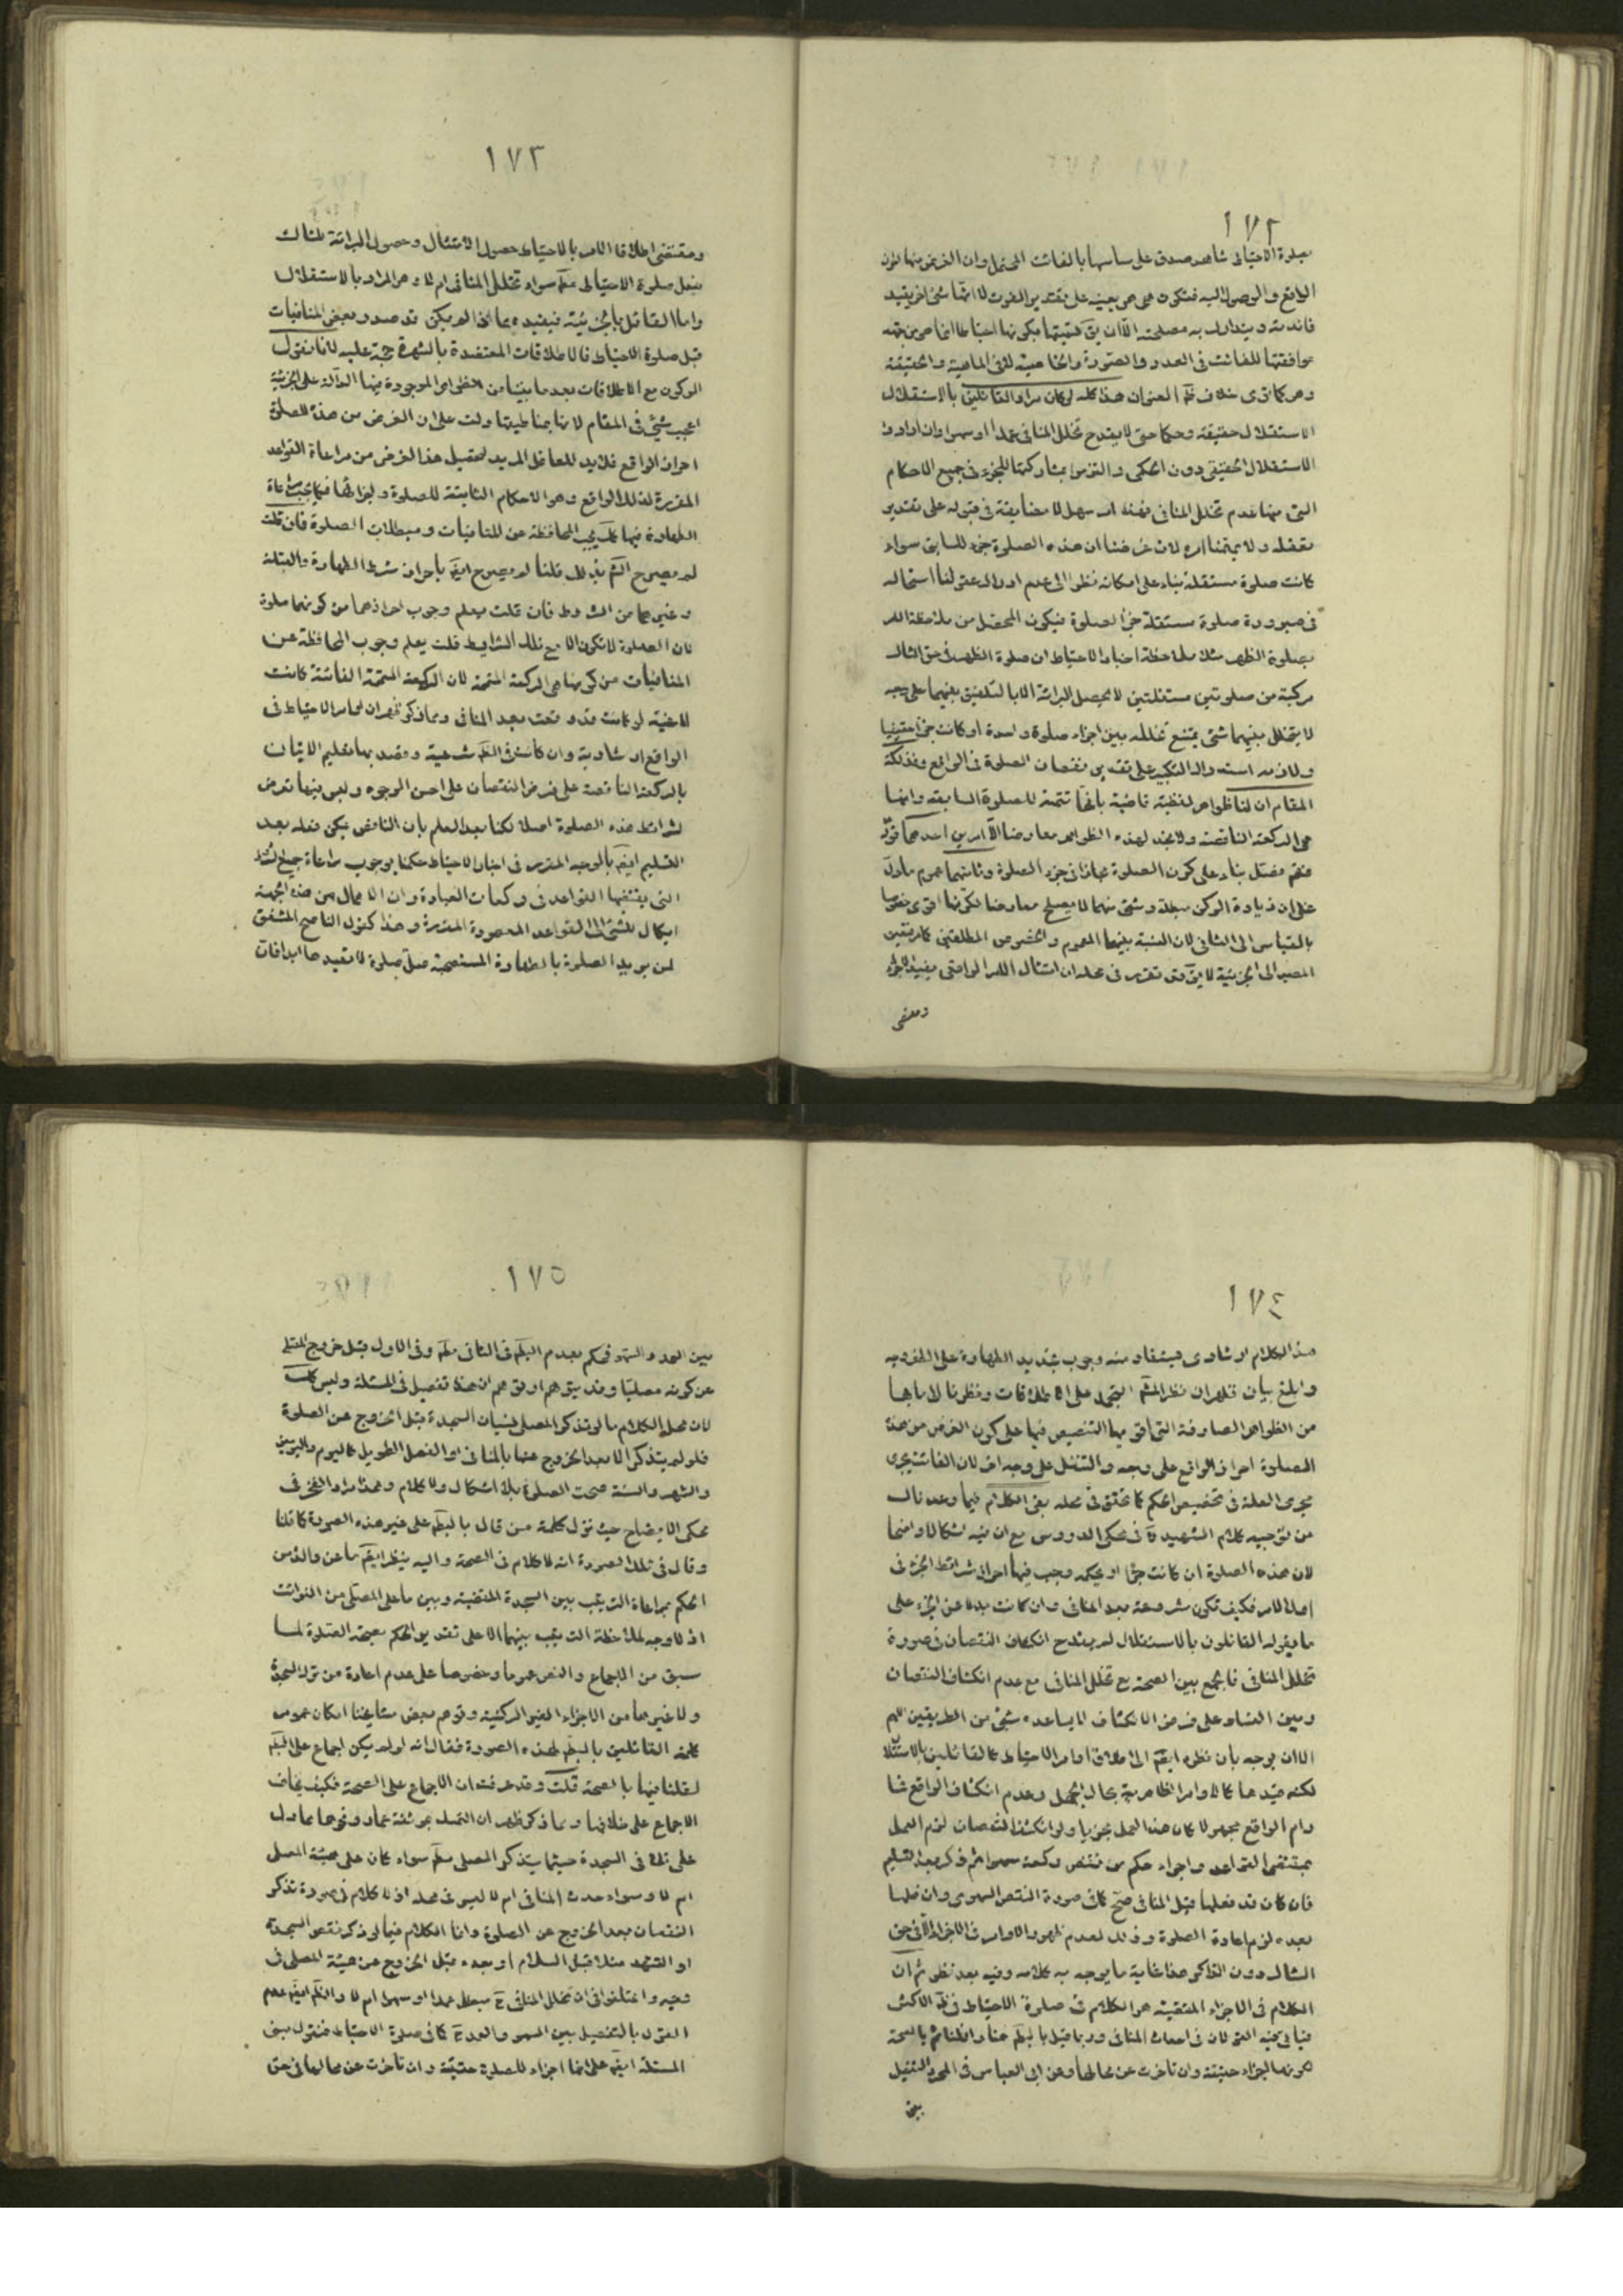 ١٧٢
بصلوة الاحتياط شاهد صدق على ساسها بالفائت المحتمل وان الغرض منها
الواقع والوصول اليه فتكون هي هي بعينه على تقدير الفوت لا انها شئ اخر يفيد
فائدته ويتدارك به مصلحته الا ان يق تسميتها بكونها احتياطا انما هي من جهة
موافقتها للفائت في العدد والصورة والخاصية لا في الماهية والحقيقة
وهو كما ترى خلاف ظ العنوان هذا كله لو كان مراد القائلين بالاستقلال
الاستقلال حقيقة وحكما حتى لا يقدح تخلل المنافي عمدا او سهوا وان ارادوا
الاستقلال الحقيقي دون الحكمي والتزموا بمشاركتها للجزء في جميع الاحكام
التي منها عدم تخلل المنافي فهذا امر سهل لا مضايقة في قبوله على تقدير
تعقله ولا يهمنا امره لان غرضنا ان هذه الصلوة جزء للسابق سواء
كانت صلوة مستقلة بناء على امكانه نظرا الى عدم ادراك عقولنا استحالة
في صيرورة صلوة مستقلة جزء الصلوة فيكون المحصل من ملاحظة الامر
بصلوة الظهر مثلا وملاحظة اخبار الاحتياط ان صلوة الظهر في حق الشاك
مركبة من صلوتين مستقلتين لا يحصل البرائة الا بالتلفيق بينهما على وجه
لا يتخلل بينهما شئ يمتنع تخلله بين اجزاء صلوة واحدة او كانت جزء حقيقيا
ولازمه استدراك التكبير على تقدير نقصان الصلوة في الواقع وفذلكة
المقام ان لنا ظواهر لفظية قاضية بانها تتمة للصلوة السابقة وانها
هي الركعة الناقصة ولا نجد لهذه الظواهر معارضا الا امرين احدهما
بناء على كون الصلوة جزء الصلوة وثانيهما عموم ما دل
على ان زيادة الركن مبطلة وشئ منهما لا يصلح معارضا لكونها اقوى خصوصا
بالقياس الى الثاني لان النسبة بينهما العموم والخصوص المطلقين
المصير الى الجزئية لا يق قد تقرر في محله ان امتثال الامر الواقعي يفيد الاجزاء
ومقتضى
١٧٣
ومقتضى اطلاقات الامر بالاحتياط حصول الامتثال وحصول البرائة للشاك
بفعل صلوة الاحتياط مط سواء تخلل المنافي ام لا وهو المراد بالاستقلال
واما القائل بالجزئية فيقيده بما اذا لم يكن قد صدر بعض المنافيات
قبل صلوة الاحتياط فالاطلاقات المعتضدة بالشهرة حجة عليه لانا نقول
الركون مع الاطلاقات بعد ما بينا من الظواهر الموجودة فيها الدالة على الجزئية
اعجب شئ في المقام لانها بمناطيتها دلت على ان الغرض من هذه الصلوة
احراز الواقع فلا بد للعاقل المريد لتحصيل هذا الغرض من مراعاة القواعد
المقررة لذلك الواقع وهو الاحكام الثابتة للصلوة ولاجزائها فكما يجب مراعاة
الطهارة فيها كك يجب المحافظة عن المنافيات ومبطلات الصلوة فان قلت
لم يصرح الش بذلك قلنا لم يصرح ايض باحراز شرط الطهارة والقبلة
وغيرهما من الشروط فان قلت يعلم وجوب احرازهما من كونها صلوة
لان الصلوة لا تكون الا مع تلك الشرايط قلت يعلم وجوب المحافظة عن
المنافيات من كونها هي الركعة المتمة لان الركعة المتمة الفائتة كانت
لاغية لو كانت قد وقعت بعد المنافي ومما ذكر ظهر ان اوامر الاحتياط في
الواقع ارشادية وان كانت في الظ شرعية وقصد بها تعليم الاتيان
بالركعة الناقصة على فرض النقصان على احسن الوجوه وليس فيها تعرض
لشرائط هذه الصلوة اصلا لكنا بعد العلم بان الناقص يمكن فعله بعد
التسليم ايض بالوجه المقرر في اخبار الاحتياط حكمنا بوجوب مراعاة جميع الشرائط
التي يقتضيها القواعد في ركعات العبادة وان الاهمال من هذه الجهة
ايكال للشئ الى القواعد المعهودة المقررة وهذا كقول الناصح المشفق
لمن يريد الصلوة بالطهارة المستصحبة صل صلوة لا تفيدها
١٧٤
هذا الكلام ارشادي فيستفاد منه وجوب تجديد الطهارة على
وابلغ بيان فظهر ان نظر الش التجمد على الاطلاقات ونظرنا
من الظواهر الصارفة التي اقويها التنصيص فيها على كون الغرض من هذه
الصلوة احراز الواقع على وجه والتنفل على وجه اخر لان الفائت يجري
مجرى العلة في تخصيص الحكم كما تحقق في محله بقي الكلام فيما وعدناك
من توجيه كلام الشهيد ره في محكى الدروس مع ان فيه اشكالا واضحا
لان هذه الصلوة ان كانت جزء او بحكمه وجب فيها احراز شرائط الجزء في
اصل الامر فكيف تكون مشروعة بعد المنافي وان كانت بدلا عن الجزء على
ما يقوله القائلون بالاستقلال لم يقدح انكشاف النقصان في صورة
تخلل المنافي فالجمع بين الصحة مع تخلل المنافي مع عدم انكشاف النقصان
وبين الفساد على فرض الانكشاف لا يساعده شئ من الطريقين اللهم
الا ان يوجه بان نظره ايض الى اطلاق اوامر الاحتياط كالقائلين بالاستقلال
لكنه قيدها كالاوامر الظاهرية بحال الجهل وعدم انكشاف الواقع فما
دام الواقع مجهولا كان هذا العمل مجزيا ولو انكشف النقصان لزم العمل
بمقتضى القواعد واجراء حكم من نقص ركعة سهوا ثم ذكر بعد التسليم
فان كان قد فعلها قبل المنافي صح كما في صورة النقص السهوي وان فعلها
بعده لزم اعادة الصلوة وذلك لعدم ظهور الاوامر في الاجزاء الا في حق
الشاك دون الذاكر هذا غاية ما يوجه به كلامه وفيه بعد نظر ثم ان
الكلام في الاجزاء المنقضية هو الكلام في صلوة الاحتياط في ظ الاكثر
فيأتي فيه القولان في احداث المنافي وربما قيل بالبط هنا وان قلنا ثم بالصحة
لكونها اجزاء حقيقة وان تاخرت عن محالها وعن ابي العباس في المحرر التفصيل
بين
١٧٥
بين العمد والسهو فحكم بعدم البط في الثاني مط وفي الاول قبل خروج المصلي
عن كونه مصليا وقد يتوهم ان هذا تفصيل في المسئلة وليس كك
لان محل الكلام ما لو تذكر المصلي نسيان السجدة قبل الخروج عن الصلوة
فلو لم يتذكر الا بعد الخروج عنها بالمنافي او الفصل الطويل كاليوم واليومين
والشهر والسنة صحت الصلوة بلا اشكال ولا كلام وهذا مراد الفخر في
محكى الايضاح حيث نزل كلمة من قال بالبط على غير هذه الصورة كما قلنا
وقال في تلك الصورة انه لا كلام في الصحة واليه ينظر ايض ما عن والدي من
الحكم بمراعاة الترتيب بين السجدة المنقضية وبين ما على المصلي من الفوائت
اذ لا وجه لملاحظة الترتيب بينهما الا على تقدير الحكم بصحة الصلوة لما
سبق من الاجماع والنص عموما وخصوصا على عدم اعادة من ترك السجدة
ولا غيرها من الاجزاء الغير الركنية وتوهم بعض مشايخنا امكان عموم
كلمة القائلين بالبط لهذه الصورة فقال انه لو لم يكن اجماع على البط
لقلنا فيها بالصحة قلت وقد عرفت ان الاجماع على الصحة فكيف يخاف
الاجماع على خلافها ومما ذكر ظهر ان التمسك بموثقة عمار ونحوها مما دل
على ذلك في السجدة حيثما يتذكر المصلي مط سواء كان على هيئة المصلي
ام لا وسواء حدث المنافي ام لا ليس في محله اذ لا كلام في صورة تذكر
النقصان بعد الخروج عن الصلوة وانما الكلام فيما لو ذكر نقص السجدة
او التشهد مثلا قبل السلام او بعده قبل الخروج عن هيئة المصلي
وفيه واختلفوا في ان تخلل المنافي ح مبطل عمدا او سهوا ام لا والظ ايض عدم
القول بالتفصيل بين السهو والعمد ح كما في صلوة الاحتياط فنقول مبنى
المسئلة ايض على انها اجزاء للصلوة حقيقة وان تاخرت عن محالها في حق